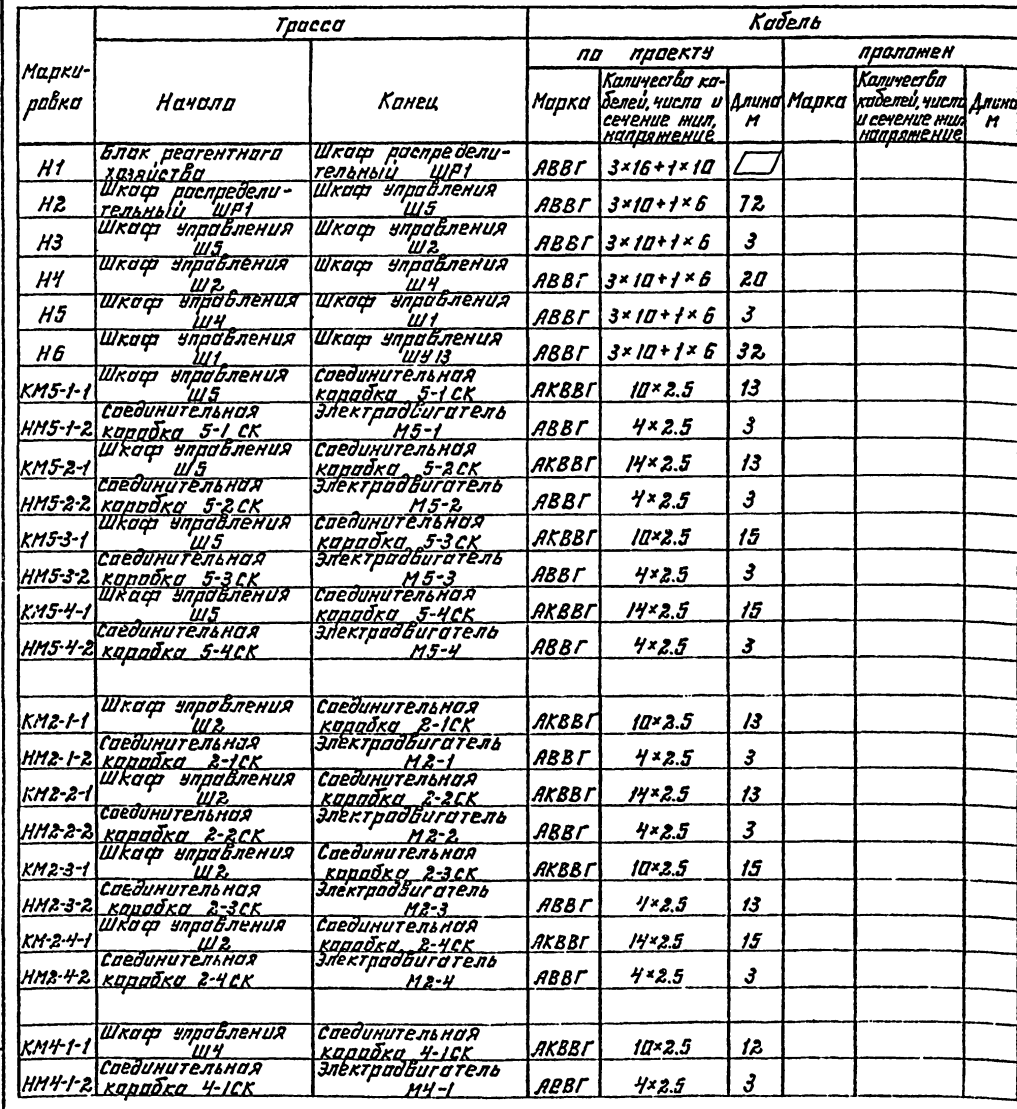 Трасса Кабель
Марки-
ровка Начало Конец по проекту проложен
Марка Количество ка-
белей, число и
сечение жил,
напряжение Длина
м Марка Количество
кабелей, число
и сечение жил
напряжение Длина
м
Н1 Блок реагентного
хозяйства Шкаф распредели-
тельный ШР1 АВВГ 3×16+1×10
Н2 Шкаф распредели-
тельный ШР1 Шкаф управления
Ш5 АВВГ 3×10+1×6 72
Н3 Шкаф управления
Ш5 Шкаф управления
Ш2 АВВГ 3×10+1×6 3
Н4 Шкаф управления
Ш2 Шкаф управления
Ш4 АВВГ 3×10+1×6 20
Н5 Шкаф управления
Ш4 Шкаф управления
Ш1 АВВГ 3×10+1×6 3
Н6 Шкаф управления
Ш1 Шкаф управления
ШУ13 АВВГ 3×10+1×6 32
КМ5-1-1 Шкаф управления
Ш5 Соединительная
коробка 5-1СК АКВВГ 10×2.5 13
НМ5-1-2 Соединительная
коробка 5-1СК Электродвигатель
М5-1 АВВГ 4×2.5 3
КМ5-2-1 Шкаф управления
Ш5 Соединительная
коробка 5-2СК АКВВГ 14×2.5 13
НМ5-2-2 Соединительная
коробка 5-2СК Электродвигатель
М5-2 АВВГ 4×2.5 3
КМ5-3-1 Шкаф управления
Ш5 Соединительная
коробка 5-3СК АКВВГ 10×2.5 15
НМ5-3-2 Соединительная
коробка 5-3СК Электродвигатель
М5-3 АВВГ 4×2.5 3
КМ5-4-1 Шкаф управления
Ш5 Соединительная
коробка 5-4СК АКВВГ 14×2.5 15
НМ5-4-2 Соединительная
коробка 5-4СК Электродвигатель
М5-4 АВВГ 4×2.5 3
КМ2-1-1 Шкаф управления
Ш2 Соединительная
коробка 2-1СК АКВВГ 10×2.5 13
НМ2-1-2 Соединительная
коробка 2-1СК Электродвигатель
М2-1 АВВГ 4×2.5 3
КМ2-2-1 Шкаф управления
Ш2 Соединительная
коробка 2-2СК АКВВГ 14×2.5 13
НМ2-2-2 Соединительная
коробка 2-2СК Электродвигатель
М2-2 АВВГ 4×2.5 3
КМ2-3-1 Шкаф управления
Ш2 Соединительная
коробка 2-3СК АКВВГ 10×2.5 15
НМ2-3-2 Соединительная
коробка 2-3СК Электродвигатель
М2-3 АВВГ 4×2.5 13
КМ-2-4-1 Шкаф управления
Ш2 Соединительная
коробка 2-4СК АКВВГ 14×2.5 15
НМ2-4-2 Соединительная
коробка 2-4СК Электродвигатель
М2-4 АВВГ 4×2.5 3
КМ4-1-1 Шкаф управления
Ш4 Соединительная
коробка 4-1СК АКВВГ 10×2.5 12
НМ4-1-2 Соединительная
коробка 4-1СК Электродвигатель
М4-1 АВВГ 4×2.5 3